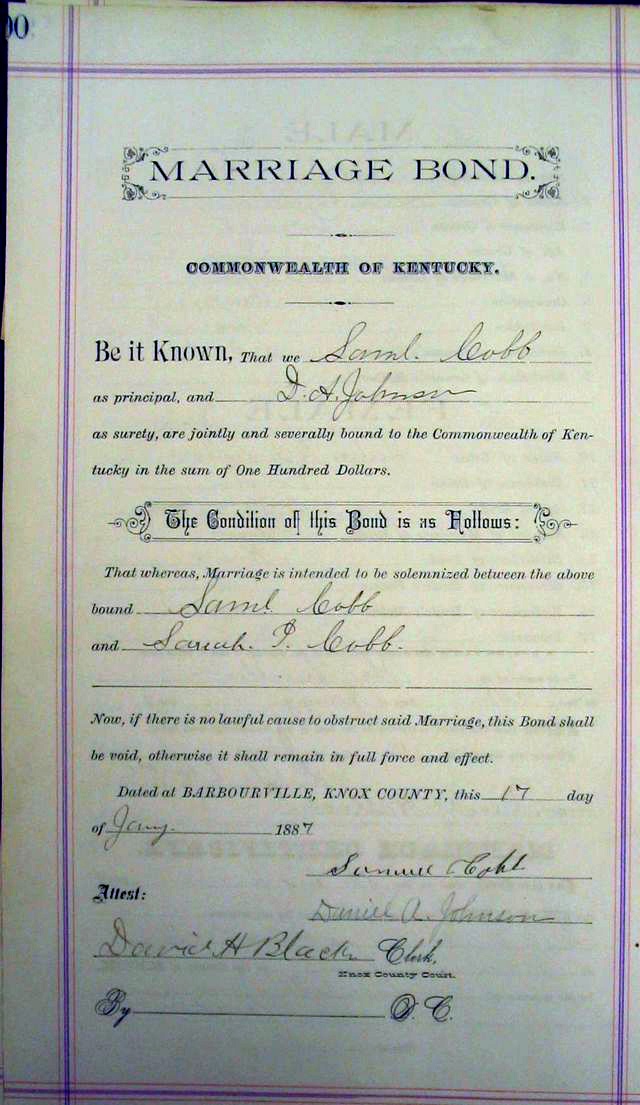 00
MARRIAGE BOND.
COMMONWEALTH OF KENTUCKY.
Be it Known, That we Saml. Cobb
as principal, and D. A. Johnson
as surety, are jointly and severally bound to the Commonwealth of Ken-
tucky in the sum of One Hundred Dollars.
The Condition of this Bond is as Follows:
That whereas, Marriage is intended to be solemnized between the above
bound Saml. Cobb
and Sarah. P. Cobb.
Now, if there is no lawful cause to obstruct said Marriage, this Bond shall
be void, otherwise it shall remain in full force and effect.
Dated at BARBOURVILLE, KNOX COUNTY, this 17 day
of Jany. 1887
Samuel Cobb
Attest:
Daniel A. Johnson
David H Black Clerk,
Knox County Court.
By D. C.